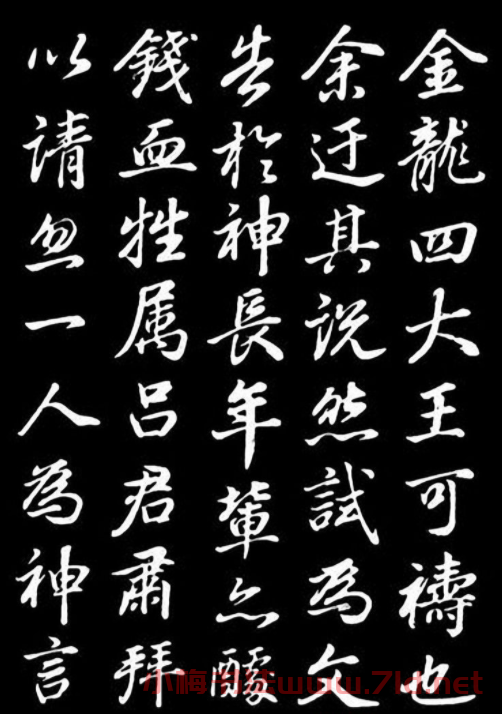 金龍四大王可禱也
余迂其説然試為文
告於神長年輩亦醵
錢血牲属吕君肅拜
以請忽一人為神言
小梅书法www.7ld.net